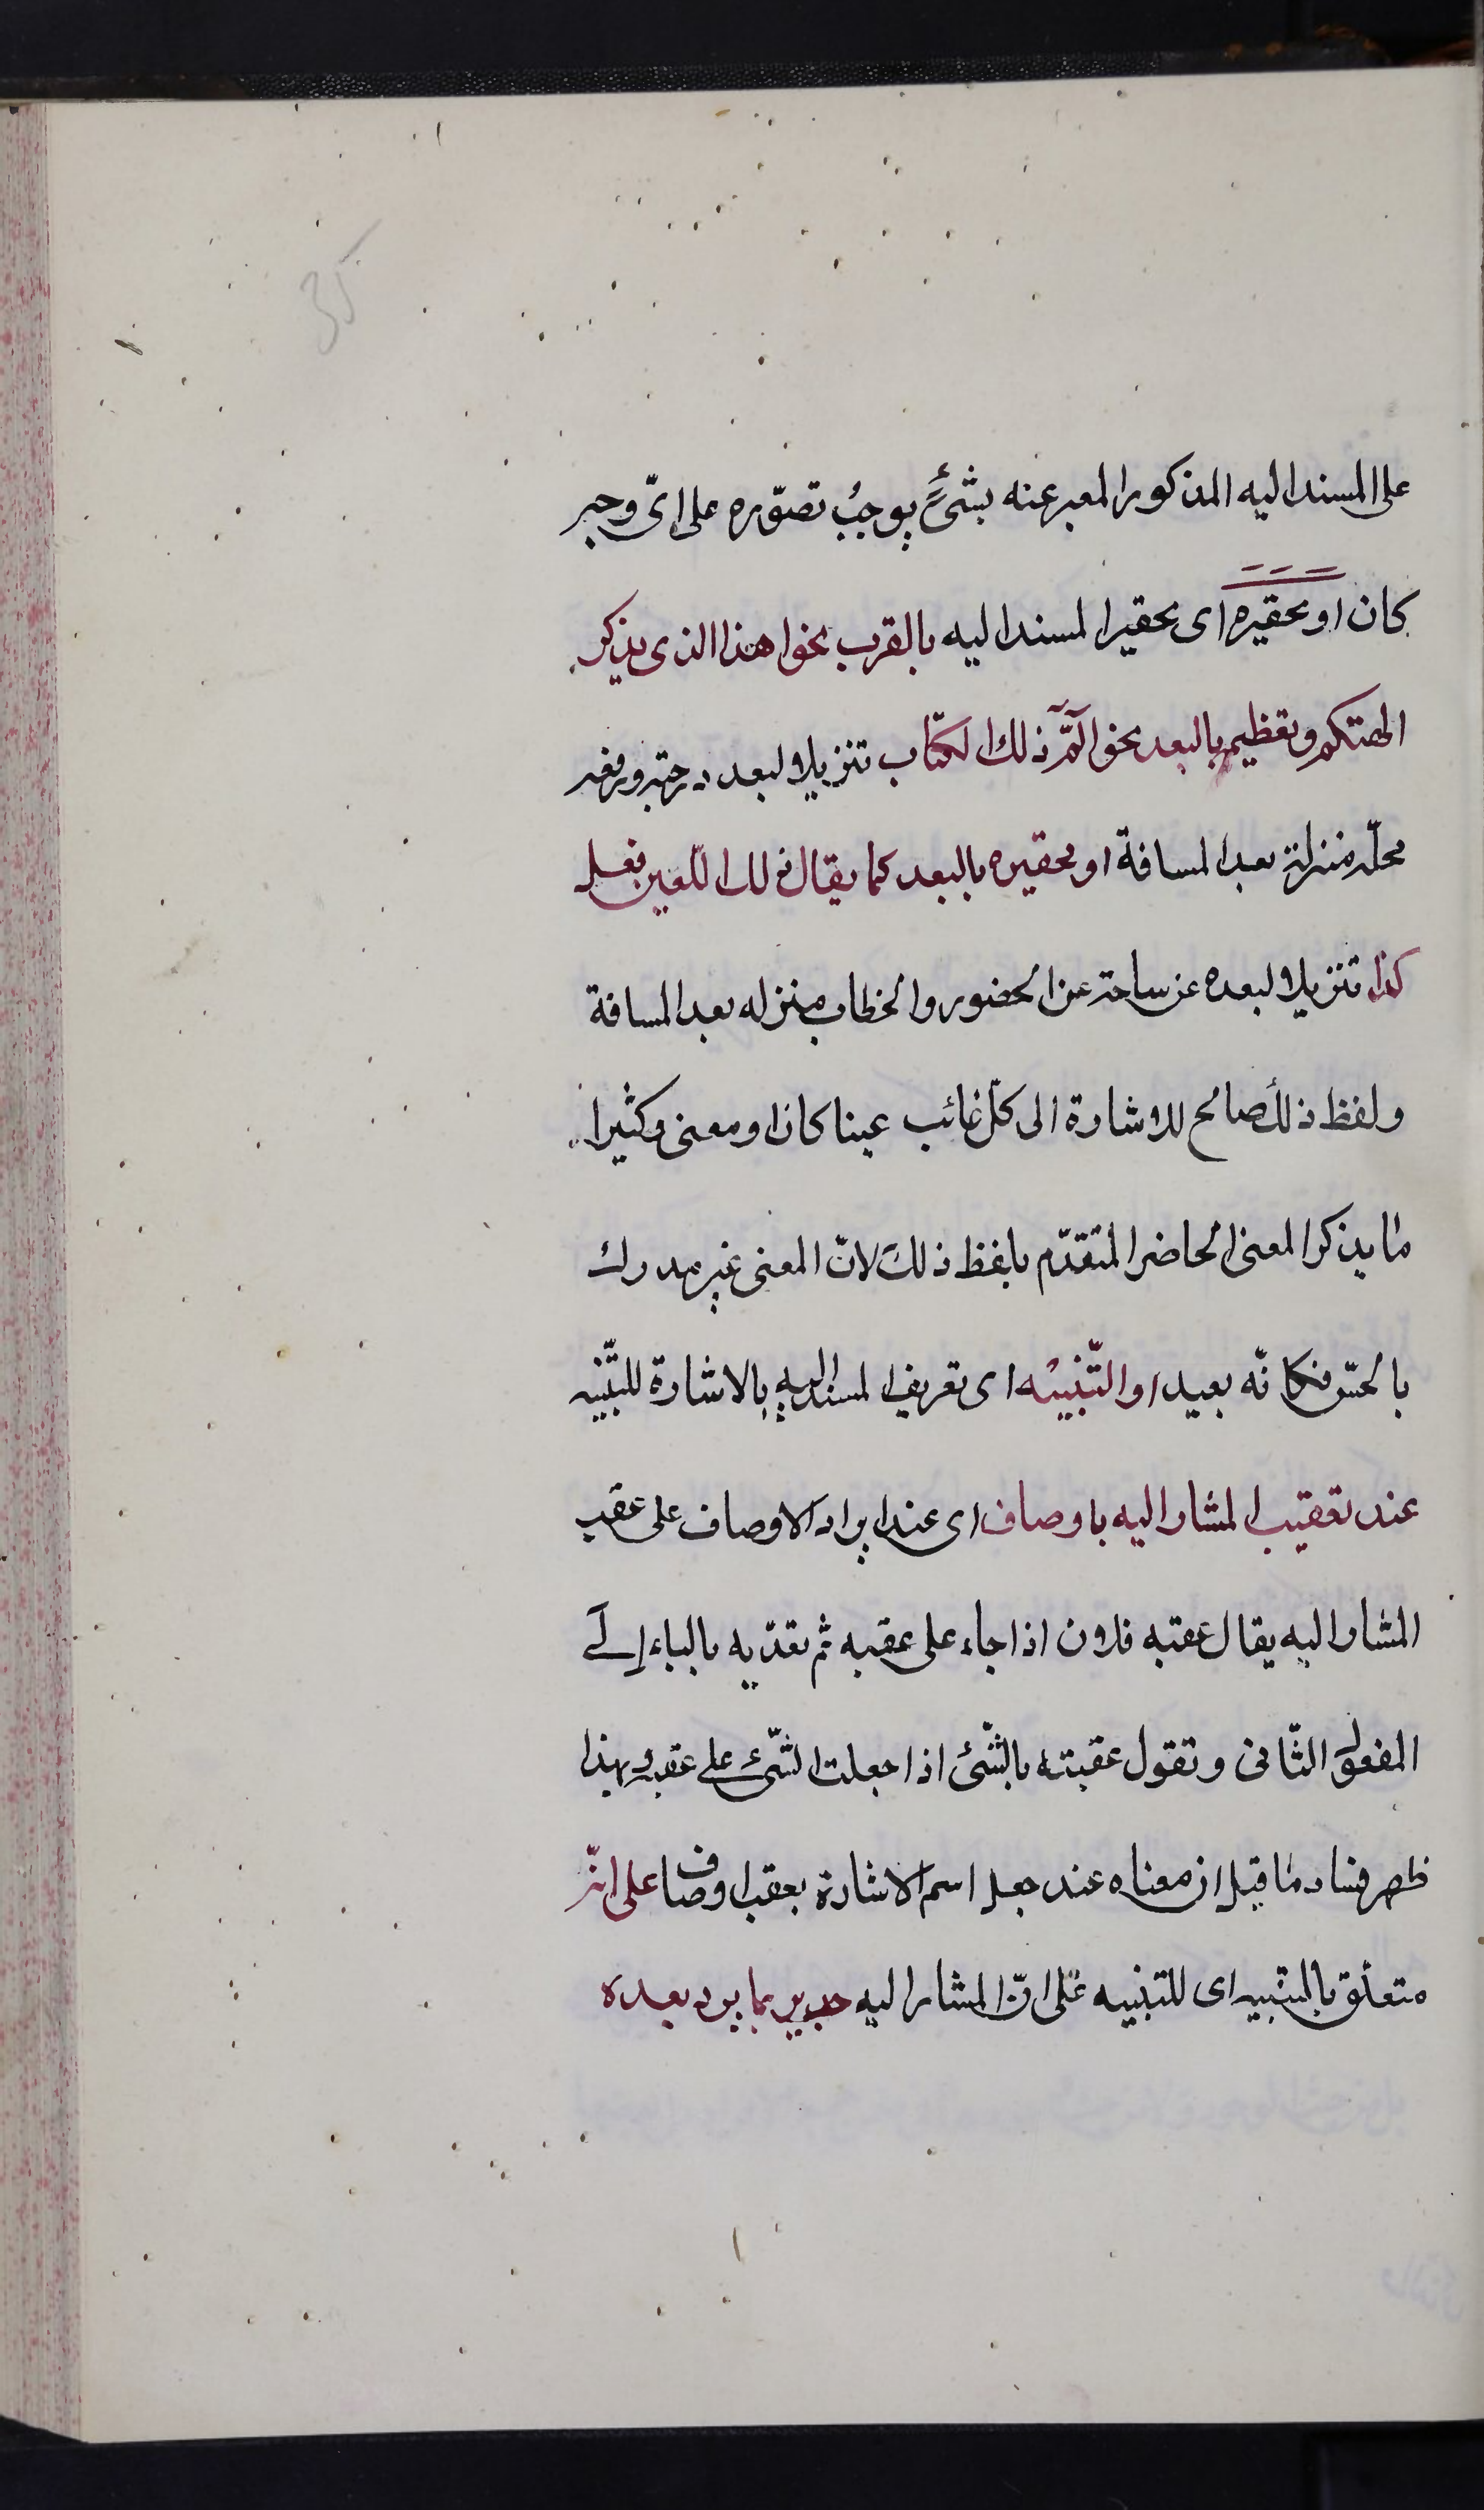 35
على المسند اليه المذكور المعبر عنه بشئ يوجب تصوّره على اىّ وجه
كان او تحقيره اى تحقير المسند اليه بالقرب نحو اهذا الذى يذكر
الهتكم وتعظيم بالبعد نحو الٓمّٓ ذلك الكتاب تنزيلا لبعد درجته ورفعه
محلّه منزلة بعد المسافة او تحقيره بالبعد كما يقال ذلك اللّعين فعل
كذا تنزيلا لبعده عن ساحة عز الحضور والخطاب منزله بعد المسافة
ولفظ ذلك صالح للاشارة الى كلّ غائب عينا كان او معنى وكثيرا
ما يذكر المعنى الحاضر المتقدّم بلفظ ذلك لانّ المعنى غير مدرك
بالحسّ فكانّه بعيد او التّنبيه اى تعريف المسند اليه بالاشارة للتّنبيه
عند تعقيب المشار اليه باوصاف اى عند ايراد الاوصاف على عقب
المشار اليه يقال عقبه فلان اذا جاء على عقبه ثم تعدّيه بالباء إلى
المفعول الثّانى وتقول عقبته بالشّئ اذا جعلت الشّئ على عقبه وبهذا
ظهر فساد ما قيل ان معناه عند جعل اسم الاشارة بعقب اوصاف على انّه
متعلّق بالتنبيه اى للتنبيه على انّ المشار اليه جدير بما يرد بعده